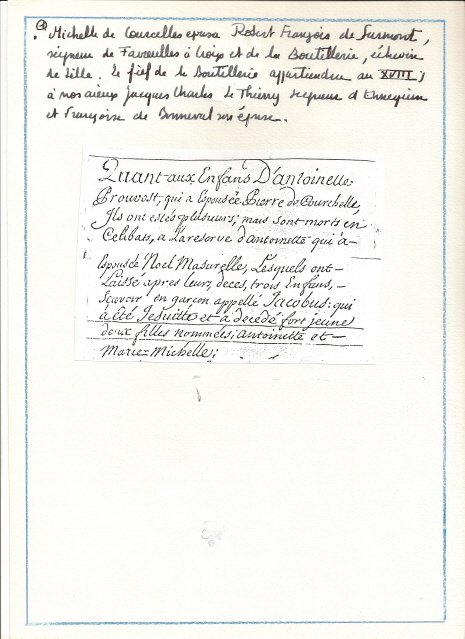 @ Michelle de Courcelles épousa Robert François de Surmont,
seigneur de Favreulles à Croix et de la Boutillerie, échevin
de Lille. Le fief de la Boutillerie appartiendra au XVIII
à nos aïeux Jacques Charles Le Thierry seigneur d'Ennequin
et Françoise de Bonneval son épouse.
Quant-aux Enfans D'antoinette
Prouvost; qui a Espousée Pierre de Courchelle,
Ils ont estés plusieurs; mais sont morts en
Celibats, a La reserve d'antoinette qui à-
Espousée Noel Masurelle, Lesquels ont-
Laissé apres leurs, deces, trois Enfans, -
Scavoir en garçon appellé Jacobus: qui
à été Jesuitte et à decédé fort jeune
deux filles nommées; antoinette et-
Marie=Michelle;